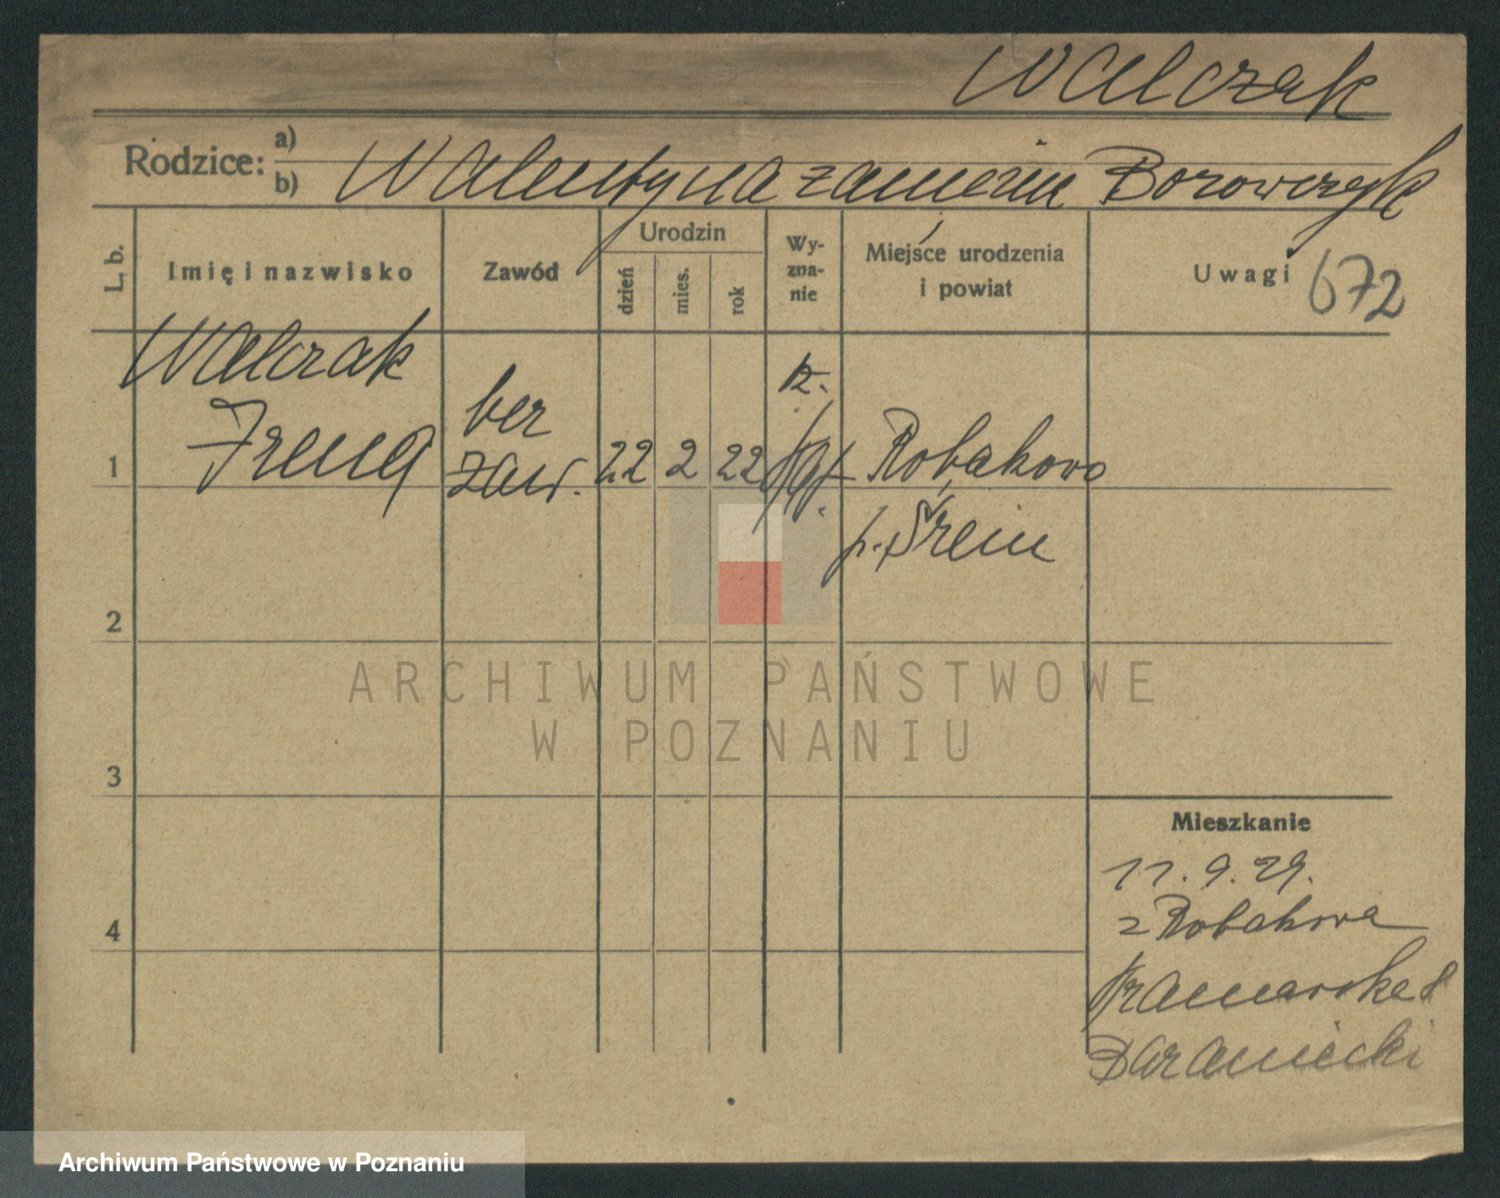 Walczak
Rodzice: a)
b) Walentyna zamężn Borowczyk
L. b.
Imię i nazwisko
Zawód
Urodzin
dzień
mies.
rok
Wy-
zna-
nie
Miejsce urodzenia
i powiat
Uwagi
672
1
Walczak
Irena
bez
zaw.
22
2
22
rz.
kat.
Robakowo
p. Śrem
2
3
4
Mieszkanie
11.9.29.
z Robakowa
Kramarska 8
Baraniecki
ARCHIWUM PAŃSTWOWE
W POZNANIU
Archiwum Państwowe w Poznaniu